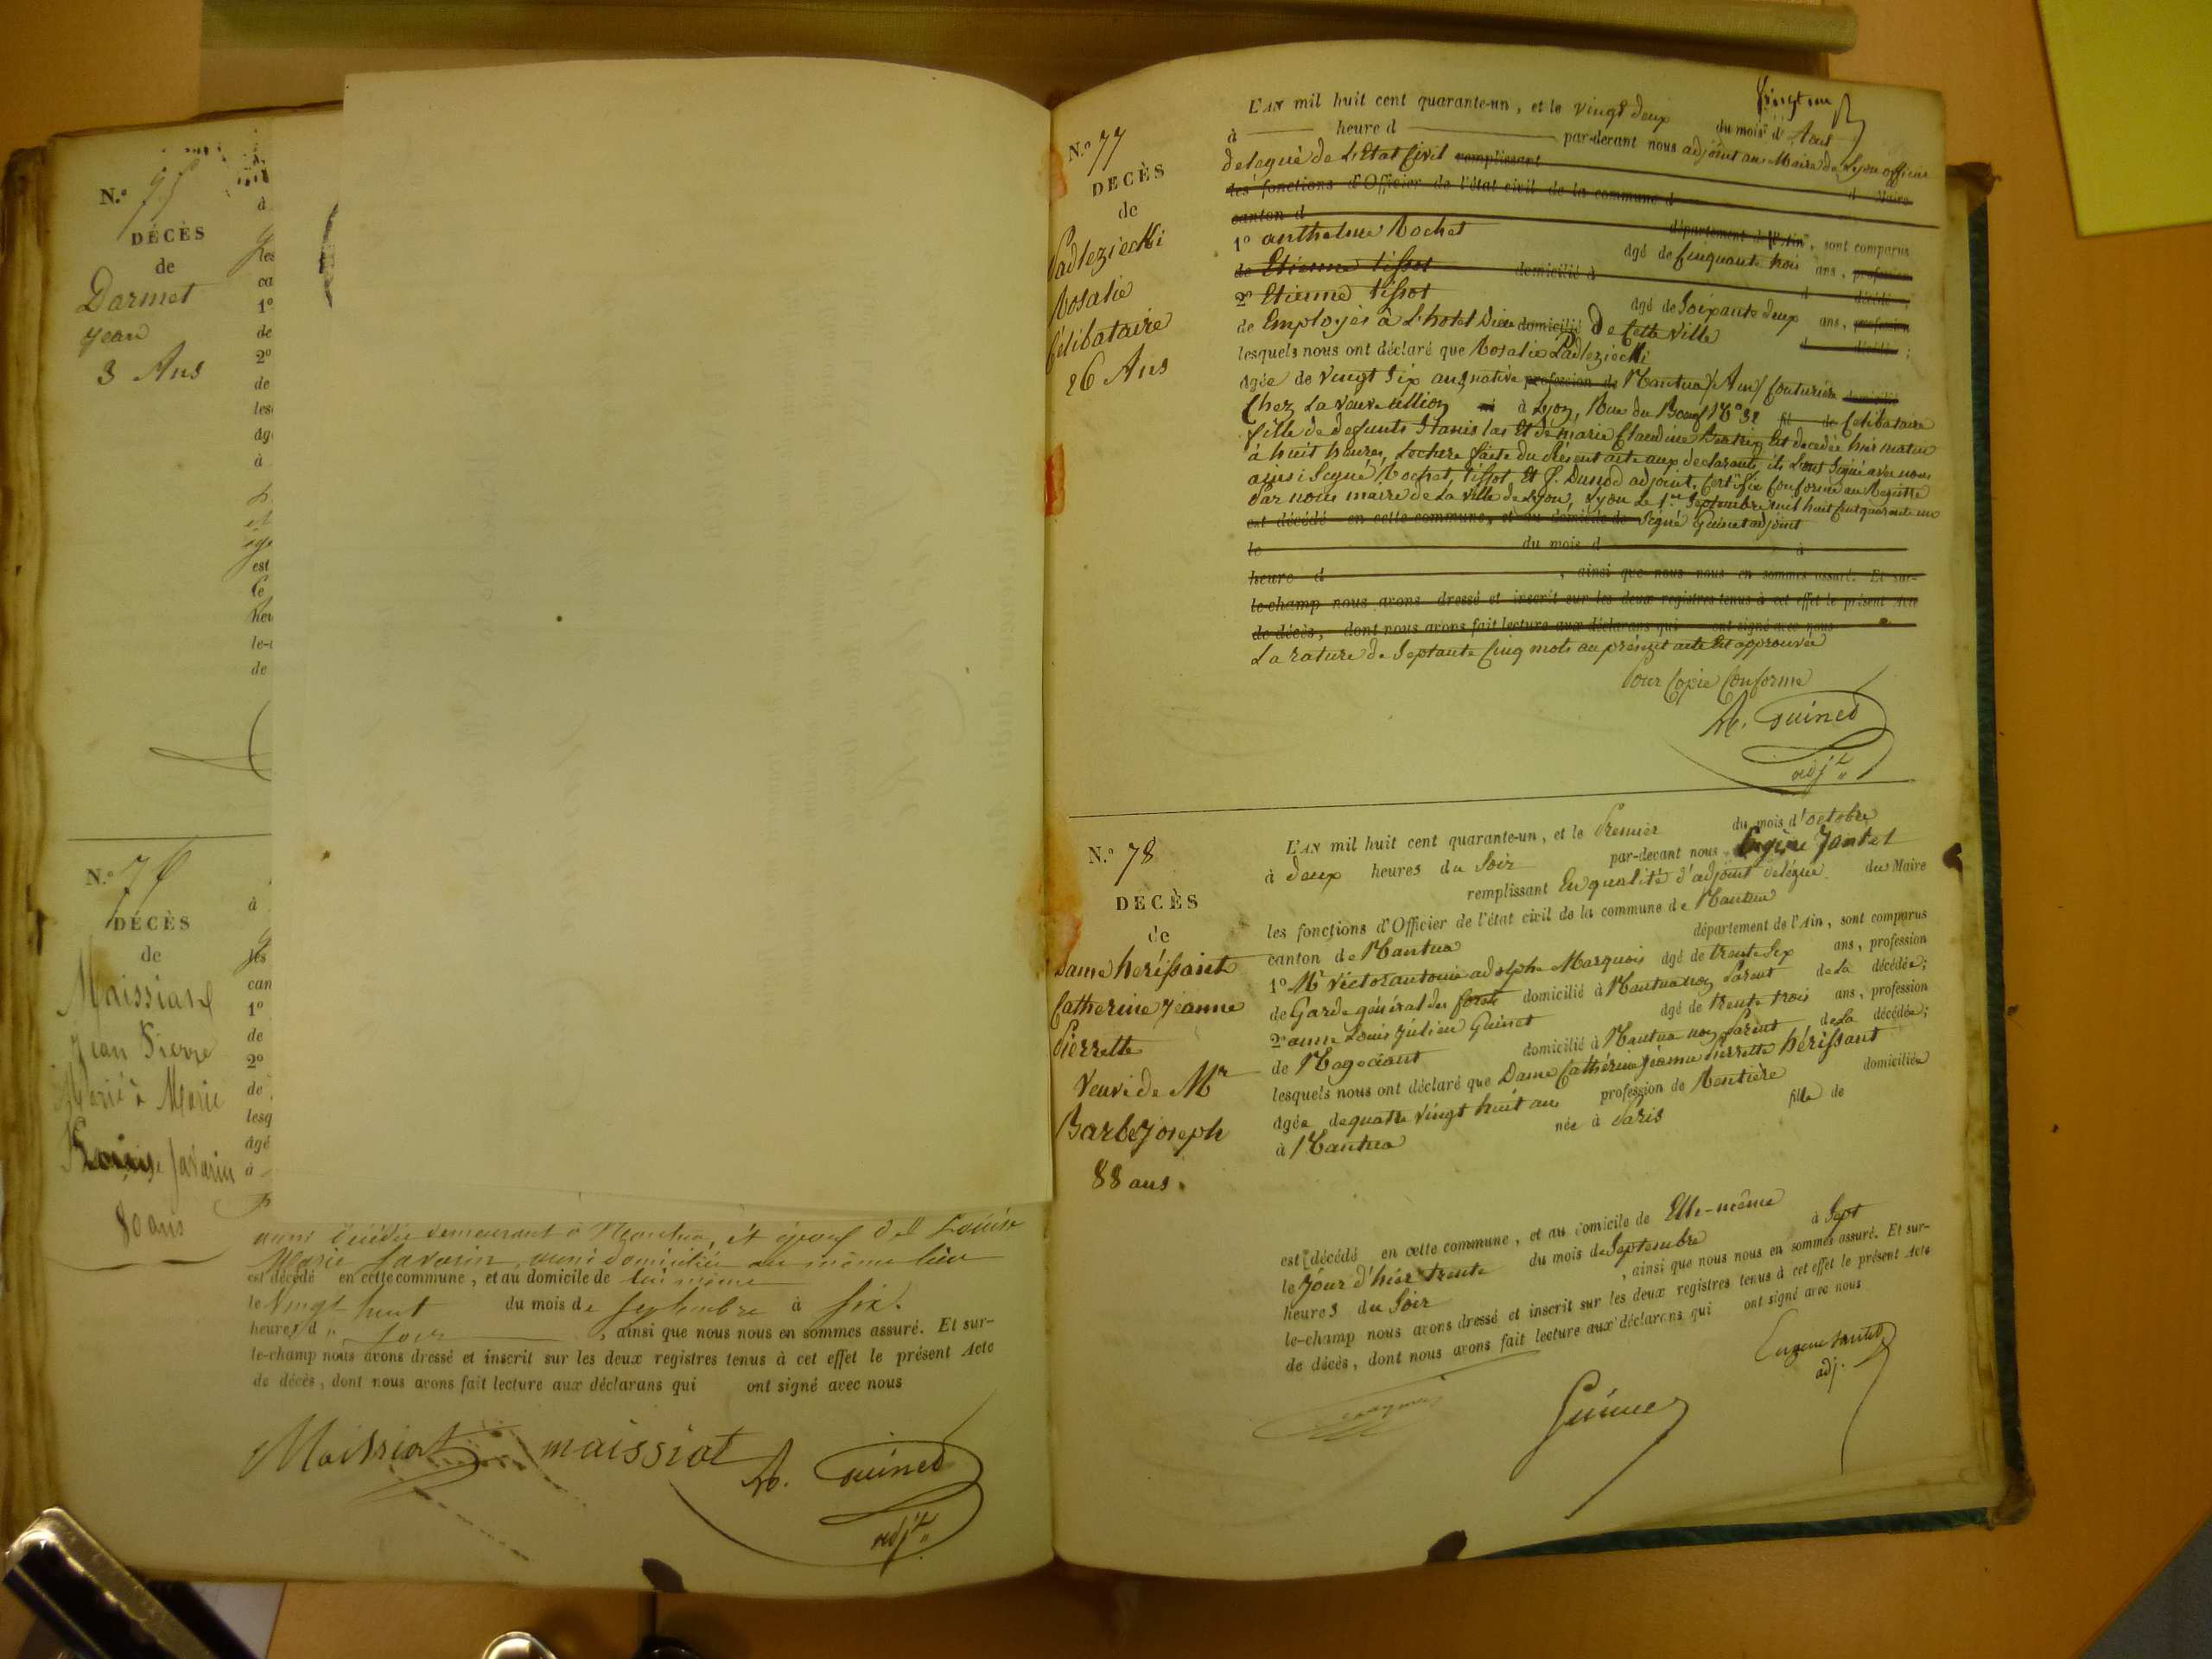 N.º 75
DÉCÈS
de
Darmet
Jean
3 Ans
à
les
ca
1º
de
2º
de
les
âg
à
est
le
heu
le-c
de
N.º 76
DÉCÈS
de
Maissiat
Jean Pierre
Marié à Marie
Louise Savarin
80 ans
à
les
can
1º
de
2º
de
lesq
âgé
à
demeurant à Nantua, et époux de Louise
Marie Savarin, aussi domiciliée au même lieu
est décédé en cette commune, et au domicile de lui même
le Vingt huit du mois de Septembre à six
heures du soir, ainsi que nous nous en sommes assuré. Et sur-
le-champ nous avons dressé et inscrit sur les deux registres tenus à cet effet le présent Acte
de décès, dont nous avons fait lecture aux déclarans qui ont signé avec nous
Maissiat maissiat A. Guinet
adjt
N.º 77
DÉCÈS
de
Padleziecki
Rosalie
Célibataire
26 Ans
Vingt un
L'AN mil huit cent quarante-un, et le vingt deux du mois d'Aout
à heure d par-devant nous adjoint au Maire de Lyon officier
délégué de L'Etat Civil remplissant d Maire
les fonctions d'Officier de l'état civil de la commune d
canton d département de l'Ain, sont comparus
1º anthelme Rochet âgé de Cinquante trois ans, profession
de Etienne tissot domicilié à d décédé;
2º Etienne tissot âgé de Soixante deux ans, profession
de Employés à L'hotel Dieu domicilié De Cette Ville d décédé;
lesquels nous ont déclaré que Rosalie Padleziecki
âgée de Vingt Six ans, native profession de Nantua (Ain) Couturière domicilié
Chez La veuve ullion né à Lyon, Rue du Boeuf Nº 32 fil de Celibataire
fille de defunts Stanislas Et de marie Claudine Beatrix Est decedée hier matin
à huit heures, Lecture faite du présent acte aux declarants, ils L'ont Signé avec nous
ainsi Signé Rochet, tissot, Et J. Dunod adjoint, Certifié Conforme au Registre
Par nous maire de La Ville de Lyon, Lyon Le 1er Septembre mil huit Cent quarante un
est décédé en cette commune, et au domicile de Signé Guinet adjoint
le du mois d à
heure d, ainsi que nous nous en sommes assuré. Et sur-
le-champ nous avons dressé et inscrit sur les deux registres tenus à cet effet le présent Acte
de décès, dont nous avons fait lecture aux déclarans qui ont signé avec nous
La rature de Septante Cinq mots au présent acte Est approuvée
Pour Copie Conforme
A. Guinet
adjt
N.º 78
DÉCÈS
de
Dame hérissant
Catherine Jeanne
Pierrette
Veuve de Mr
Barbe Joseph
88 ans.
L'AN mil huit cent quarante-un, et le Premier du mois d'octobre
à deux heures du Soir par-devant nous Eugène Jantet
remplissant En qualité d'adjoint délégué du Maire
les fonctions d'Officier de l'état civil de la commune de Nantua
canton de Nantua département de l'Ain, sont comparus
1º Mr Victor antoine adolphe Marquois âgé de trente Six ans, profession
de Garde général des forets domicilié à Nantua non Parent de La décédée;
2º anne Louis Julien Guinet âgé de trente trois ans, profession
de Négociant domicilié à Nantua non Parent de La décédée;
lesquels nous ont déclaré que Dame Cathérine Jeanne Pierrette hérissant
âgée de quatre Vingt huit ans profession de Rentière domiciliée
à Nantua née à Paris fille de
est décédé en cette commune, et au domicile de Elle-même
le Jour d'hier trente du mois de Septembre à Sept
heures du Soir, ainsi que nous nous en sommes assuré. Et sur-
le-champ nous avons dressé et inscrit sur les deux registres tenus à cet effet le présent Acte
de décès, dont nous avons fait lecture aux déclarans qui ont signé avec nous
Eugene Jantet
adj.
Guinet